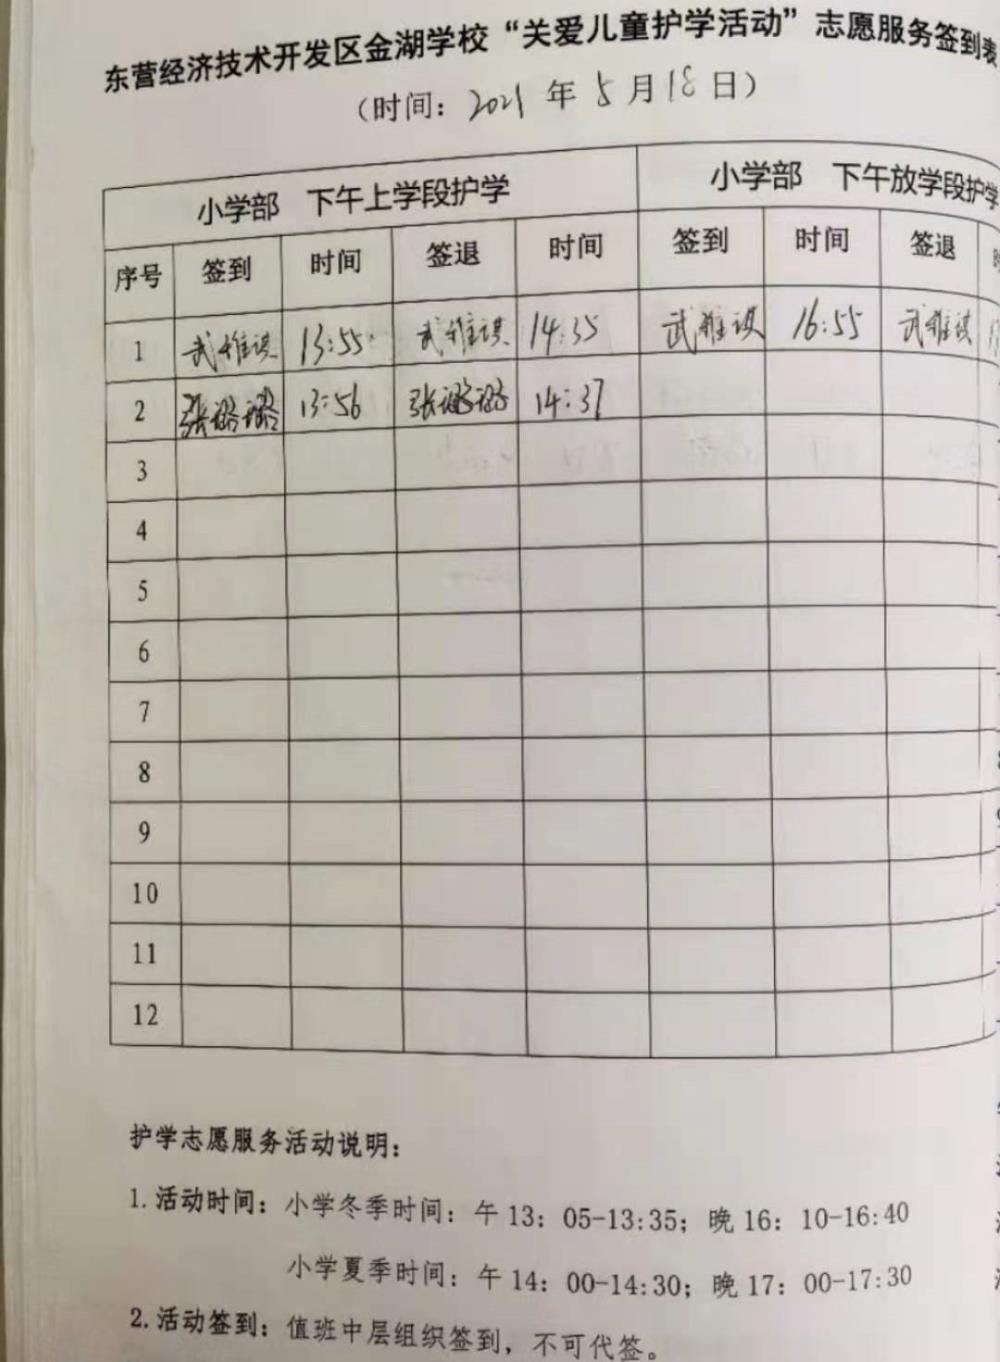 东营经济技术开发区金湖学校“关爱儿童护学活动”志愿服务签到表
（时间：2021 年 5 月 18 日）
小学部 下午上学段护学 小学部 下午放学段护学
序号 签到 时间 签退 时间 签到 时间 签退
1 武雅琪 13:55 武雅琪 14:35 武雅琪 16:55 武雅琪
2 张璐璐 13:56 张璐璐 14:37
3
4
5
6
7
8
9
10
11
12
护学志愿服务活动说明：
1.活动时间：小学冬季时间：午 13：05-13:35；晚 16：10-16:40
小学夏季时间：午 14：00-14:30；晚 17：00-17:30
2.活动签到：值班中层组织签到，不可代签。